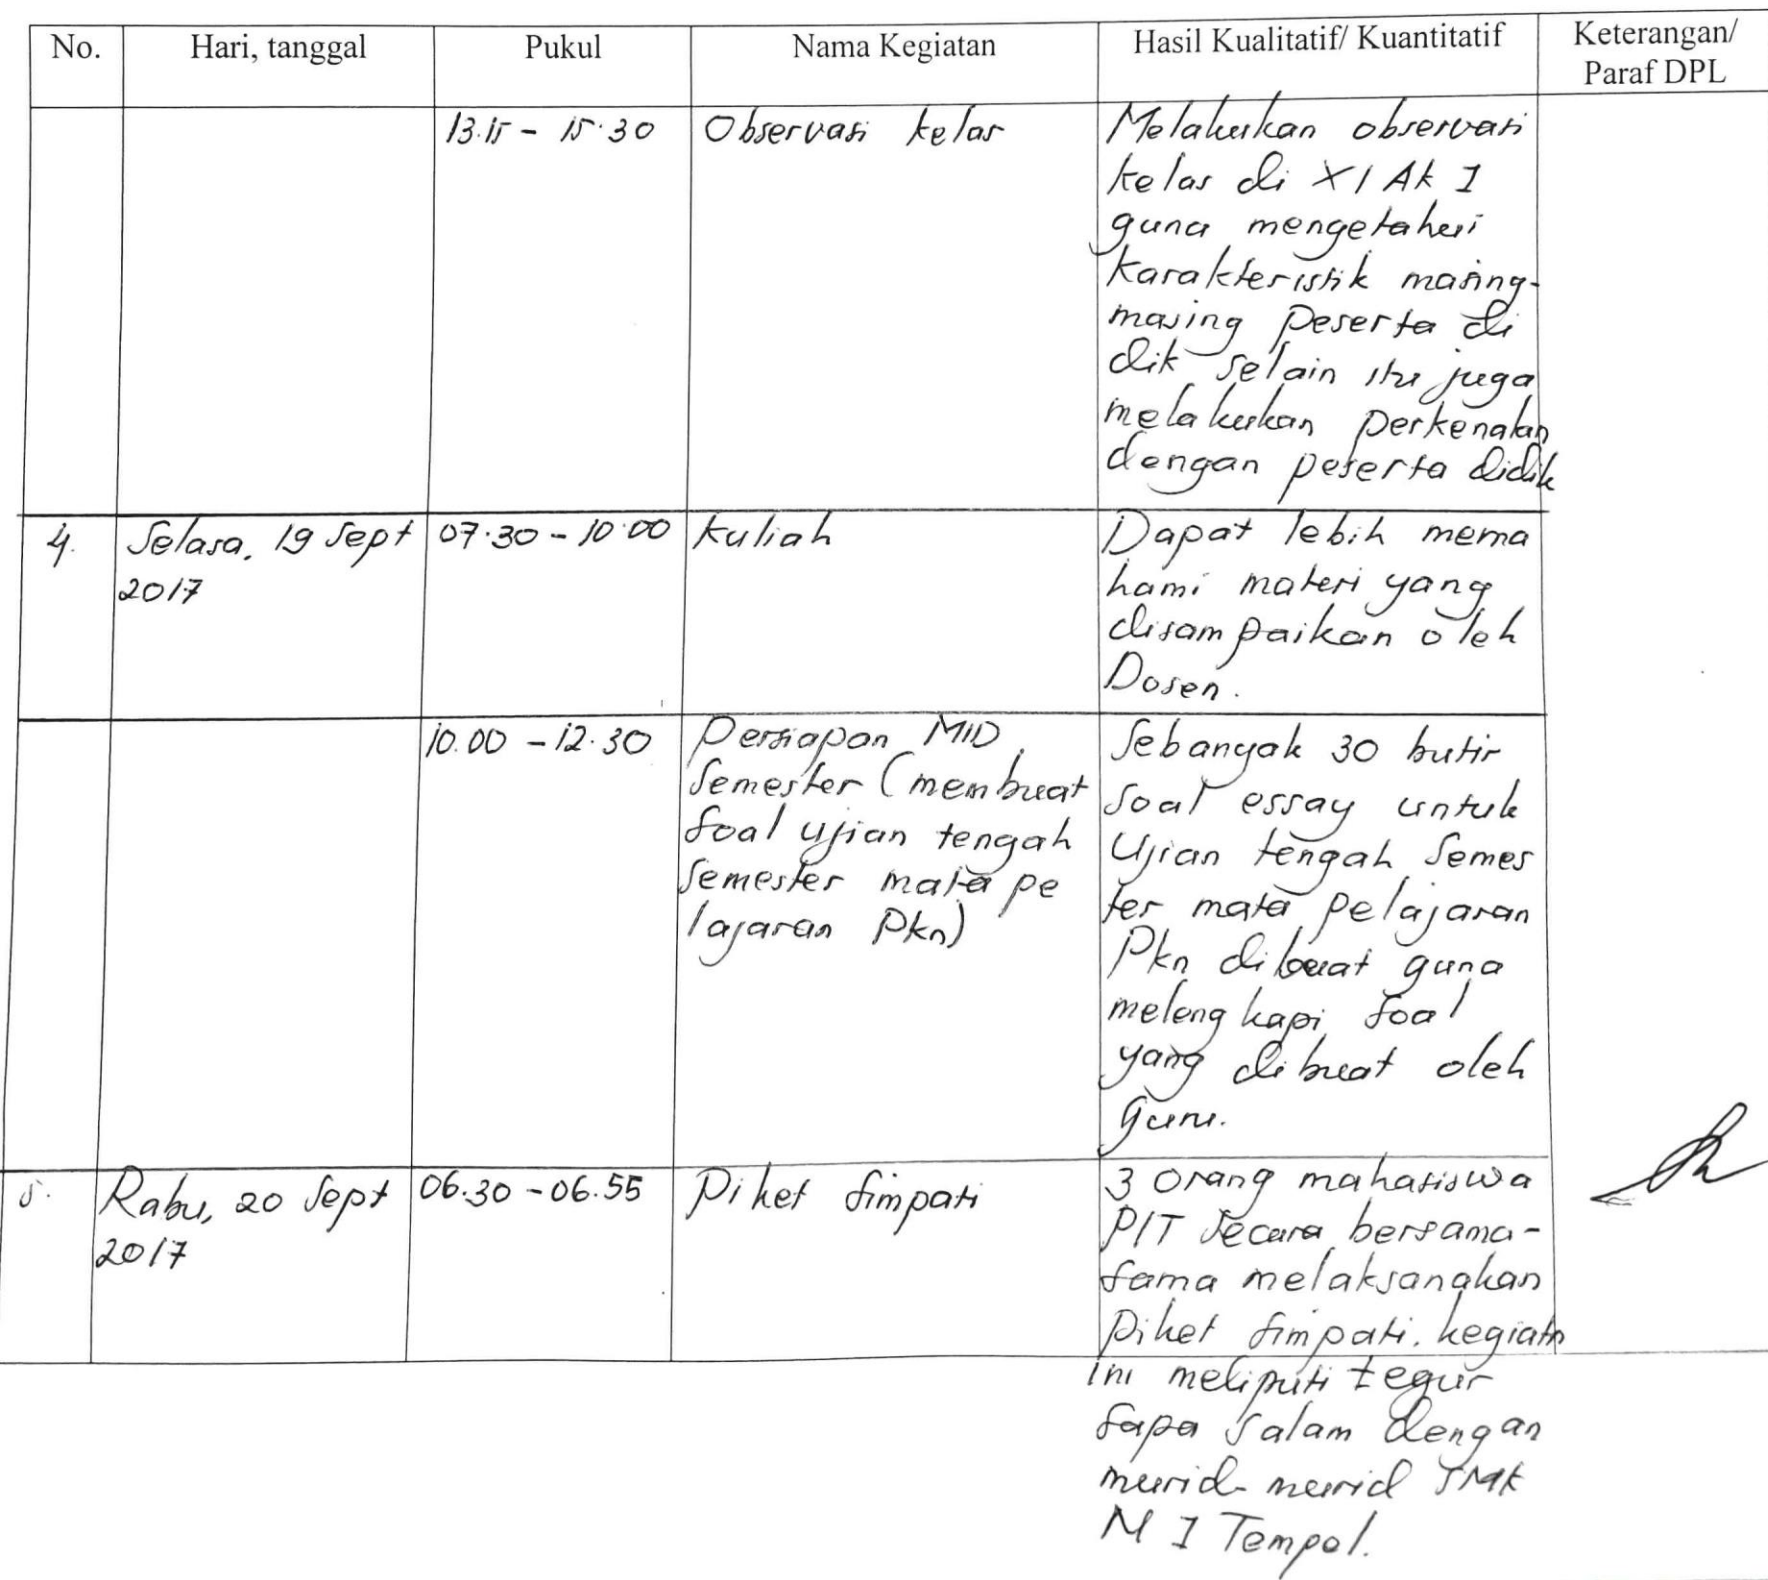 No.
Hari, tanggal
Pukul
Nama Kegiatan
Hasil Kualitatif/ Kuantitatif
Keterangan/
Paraf DPL
13.15 - 15.30
Observasi kelas
Melakukan observasi
kelas di XI AK 1
guna mengetahui
karakteristik masing-
masing peserta di
dik selain itu juga
melakukan perkenalan
dengan peserta didik
4.
Selasa, 19 Sept
2017
07.30 - 10.00
Kuliah
Dapat lebih mema
hami materi yang
disampaikan oleh
Dosen.
10.00 - 12.30
Persiapan MID
Semester (membuat
Soal ujian tengah
Semester mata pe
lajaran Pkn)
Sebanyak 30 butir
Soal essay untuk
Ujian tengah Semes
ter mata pelajaran
Pkn dibuat guna
melengkapi soal
yang dibuat oleh
guru.
5.
Rabu, 20 Sept
2017
06.30 - 06.55
Piket Simpati
3 Orang mahasiswa
PLT Secara bersama-
sama melaksanakan
Piket Simpati. kegiatn
ini meliputi tegur
sapa salam dengan
murid-murid SMK
N 1 Tempel.